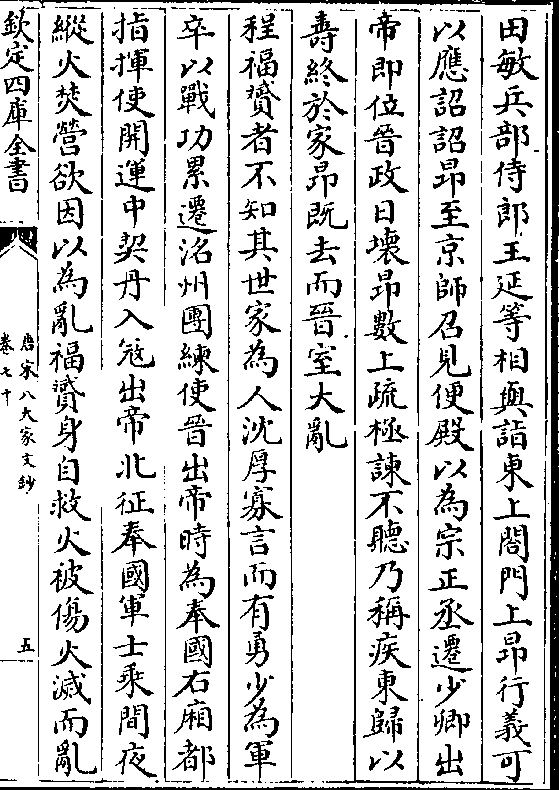 田敏兵部侍郎王延等相與詣東上閤門上昂行義可
以應詔詔昂至京師召見便殿以為宗正丞遷少卿出
帝即位晉政日壞昂數上疏極諫不聽乃稱疾東歸以
壽終於家昂既去而晉室大亂
程福贇者不知其世家為人沈厚寡言而有勇少為軍
卒以戰功累遷洺州團練使晉出帝時為奉國右廂都
指揮使開運中契丹入寇出帝北征奉國軍士乘間夜
縱火焚營欲因以為亂福贇身自救火被傷火滅而亂
欽定四庫全書
唐宋八大家文鈔
卷七十
五